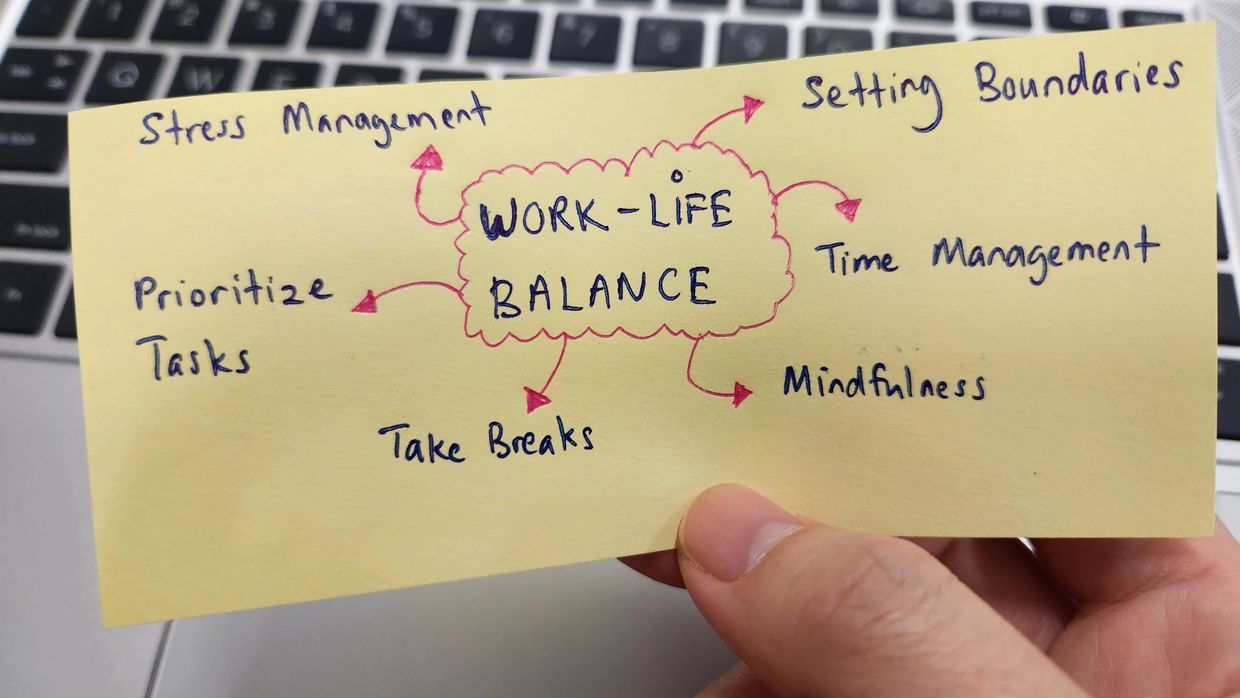 Stress Management
Setting Boundaries
WORK-LiFE
BALANCE
Time Management
Prioritize
Tasks
Mindfulness
Take Breaks
Q
W